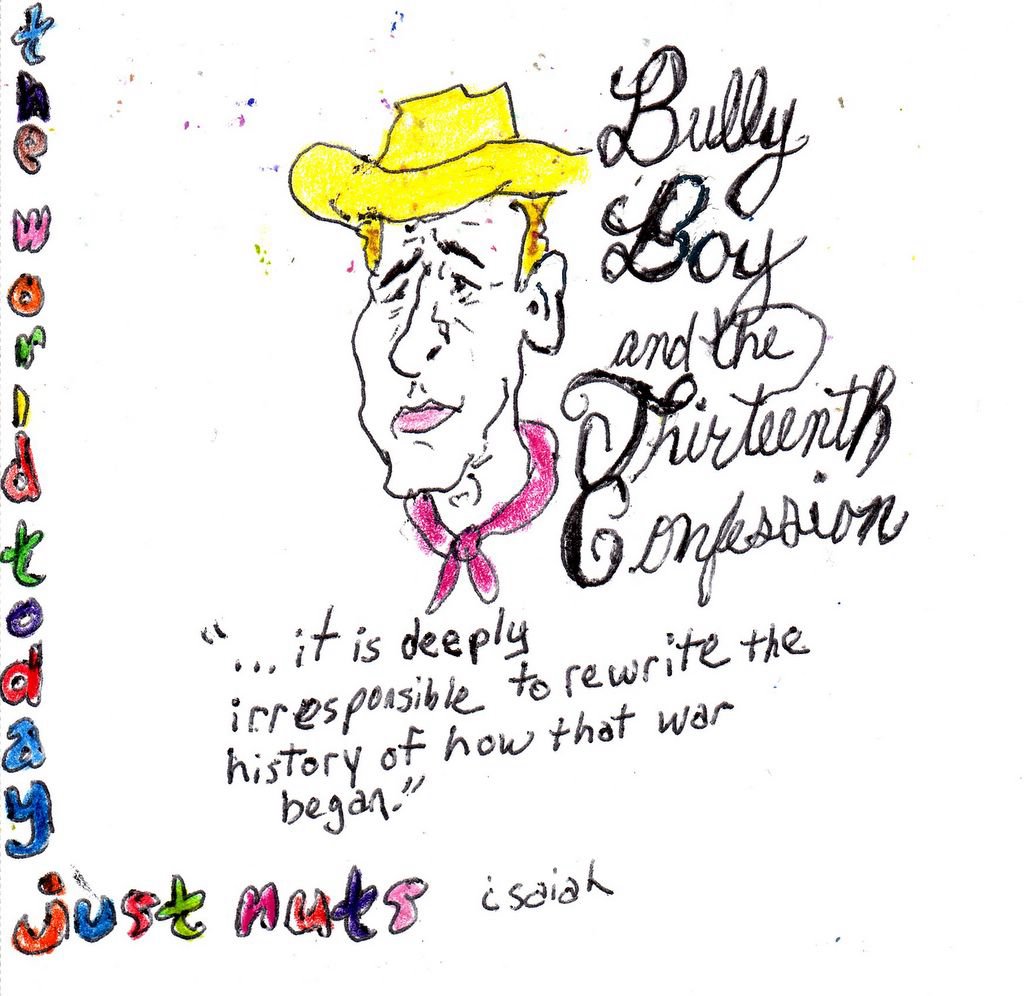 the world today
just nuts
Bully
Boy
and the
Thirteenth
Confession
"... it is deeply
irresponsible to rewrite the
history of how that war
began."
isaiah